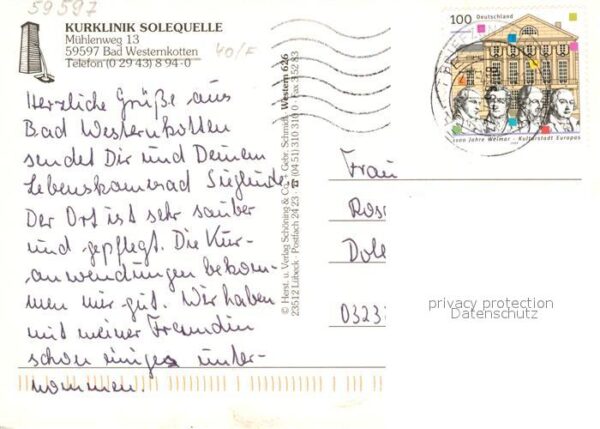 59597
KURKLINIK SOLEQUELLE
Mühlenweg 13
59597 Bad Westernkotten
Telefon (0 29 43) 8 94-0
40/F
Herzliche Grüße aus
Bad Westernkotten
sendet Dir und Deinem
Lebenskamerad Sieglinde
Der Ort ist sehr sauber
und gepflegt. Die Kur-
anwendungen bekom-
men mir gut. Wir haben
mit meiner Freundin
schon einiges unter-
nommen.
© Herst. u. Verlag Schöning & Co. + Gebr. Schmidt · Western 626
23512 Lübeck · Postfach 24 23 · ☎ (04 51) 310 310 0 · Fax
100 Deutschland
1100 Jahre Weimar - Kulturstadt Europas
Frau
Ros
Dole
0323
privacy protection
Datenschutz